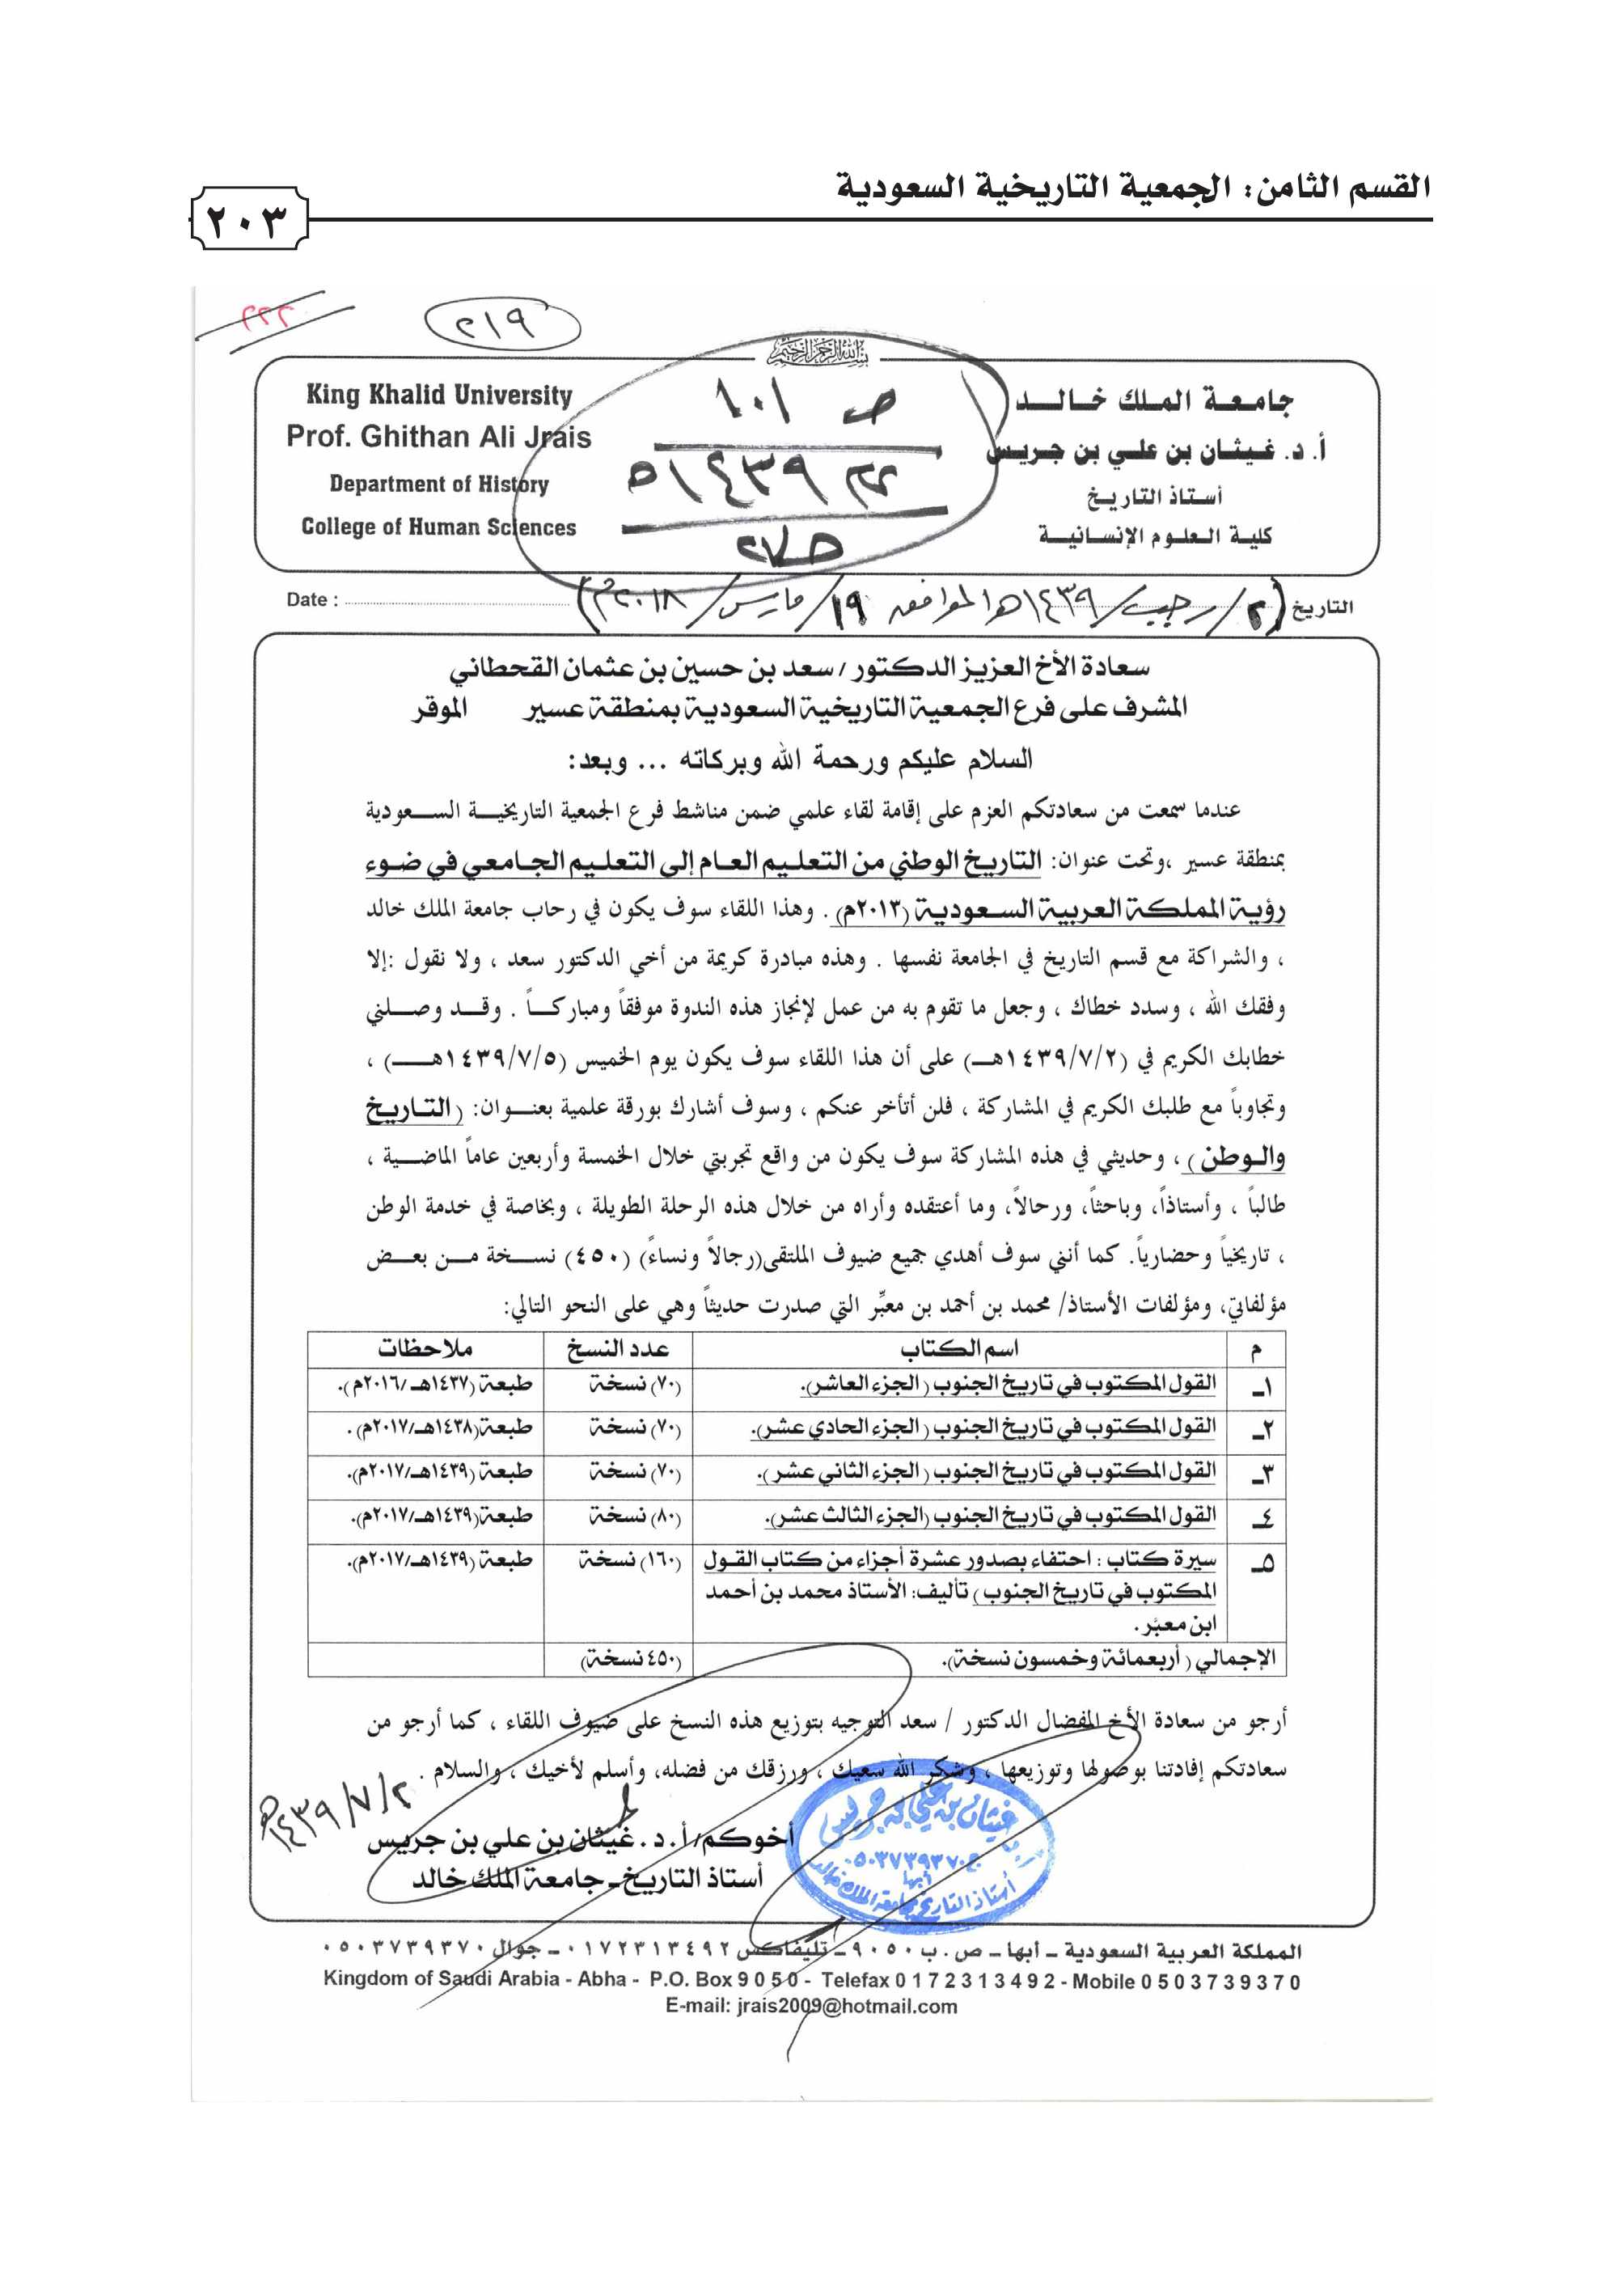 القسم الثامن: الجمعية التاريخية السعودية
٢٠٣
٢٢٢
٢١٩
بسم الله الرحمن الرحيم
جامعة الملك خالد
أ. د. غيثان بن علي بن جريس
أستاذ التاريخ
كلية العلوم الإنسانية
King Khalid University
Prof. Ghithan Ali Jrais
Department of History
College of Human Sciences
ص ١٠١
١٤٣٩هـ
التاريخ (٢/رجب/١٤٣٩هـ الموافق ١٩/مارس/٢٠١٨م) Date :
سعادة الأخ العزيز الدكتور / سعد بن حسين بن عثمان القحطاني
المشرف على فرع الجمعية التاريخية السعودية بمنطقة عسير الموقر
السلام عليكم ورحمة الله وبركاته ... وبعد:
عندما سمعت من سعادتكم العزم على إقامة لقاء علمي ضمن مناشط فرع الجمعية التاريخية السعودية
بمنطقة عسير ،وتحت عنوان: التاريخ الوطني من التعليم العام إلى التعليم الجامعي في ضوء
رؤية المملكة العربية السعودية (٢٠١٣م) . وهذا اللقاء سوف يكون في رحاب جامعة الملك خالد
، والشراكة مع قسم التاريخ في الجامعة نفسها . وهذه مبادرة كريمة من أخي الدكتور سعد ، ولا نقول :إلا
وفقك الله ، وسدد خطاك ، وجعل ما تقوم به من عمل لإنجاز هذه الندوة موفقاً ومباركاً . وقد وصلني
خطابك الكريم في (١٤٣٩/٧/٢هـ) على أن هذا اللقاء سوف يكون يوم الخميس (١٤٣٩/٧/٥هـ) ،
وتجاوباً مع طلبك الكريم في المشاركة ، فلن أتأخر عنكم ، وسوف أشارك بورقة علمية بعنوان: (التاريخ
والوطن) ، وحديثي في هذه المشاركة سوف يكون من واقع تجربتي خلال الخمسة وأربعين عاماً الماضية ،
طالباً ، وأستاذاً، وباحثاً، ورحالاً، وما أعتقده وأراه من خلال هذه الرحلة الطويلة ، وبخاصة في خدمة الوطن
، تاريخياً وحضارياً. كما أنني سوف أهدي جميع ضيوف الملتقى(رجالاً ونساءً) (٤٥٠) نسخة من بعض
مؤلفاتي، ومؤلفات الأستاذ/ محمد بن أحمد بن معبِّر التي صدرت حديثاً وهي على النحو التالي:
م اسم الكتاب عدد النسخ ملاحظات
١ـ القول المكتوب في تاريخ الجنوب (الجزء العاشر). (٧٠) نسخة طبعة (١٤٣٧هـ/٢٠١٦م).
٢ـ القول المكتوب في تاريخ الجنوب (الجزء الحادي عشر). (٧٠) نسخة طبعة(١٤٣٨هـ/٢٠١٧م) .
٣ـ القول المكتوب في تاريخ الجنوب (الجزء الثاني عشر). (٧٠) نسخة طبعة (١٤٣٩هـ/٢٠١٧م).
٤ـ القول المكتوب في تاريخ الجنوب (الجزء الثالث عشر). (٨٠) نسخة طبعة(١٤٣٩هـ/٢٠١٧م).
٥ـ سيرة كتاب : احتفاء بصدور عشرة أجزاء من كتاب القول (١٦٠) نسخة طبعة (١٤٣٩هـ/٢٠١٧م).
المكتوب في تاريخ الجنوب) تأليف: الأستاذ محمد بن أحمد
ابن معبّر .
الإجمالي (أربعمائة وخمسون نسخة). (٤٥٠ نسخة)
أرجو من سعادة الأخ المفضال الدكتور / سعد التوجيه بتوزيع هذه النسخ على ضيوف اللقاء ، كما أرجو من
سعادتكم إفادتنا بوصولها وتوزيعها ، وشكر الله سعيك ، ورزقك من فضله، وأسلم لأخيك ، والسلام .
١٤٣٩/٧/٢هـ
أخوكم/ أ. د . غيثان بن علي بن جريس
أستاذ التاريخ ـ جامعة الملك خالد
غيثان بن علي بن جريس
٠٥٠٣٧٣٩٣٧٠
أبها
أستاذ التاريخ بجامعة الملك خالد
المملكة العربية السعودية ـ أبها ـ ص . ب ٩٠٥٠ ـ تليفاكس ٠١٧٢٣١٣٤٩٢ ـ جوال ٠٥٠٣٧٣٩٣٧٠
Kingdom of Saudi Arabia - Abha - P.O. Box 9 0 5 0 - Telefax 0 1 7 2 3 1 3 4 9 2 - Mobile 0 5 0 3 7 3 9 3 7 0
E-mail: jrais2009@hotmail.com